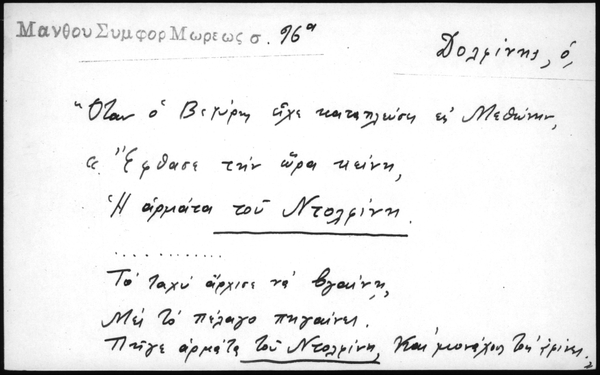 Μανθου Συμφορ Μωρεως σ. 96α
Δολφίνης, ὁ,
"Ὅταν ὁ Βεζύρης εἶχε καταπλεύση εἰς Μεθώνην,
"Ἔφθασε τὴν ὥρα κείνη,
Ἡ ἁρμάτα τοῦ Ντολφίνη.
..............
Τὸ ταχὺ ἄρχισε νὰ βγαίνῃ,
Μὲ τὸ πέλαγο πηγαίνει.
Πῆγε ἁρμάτα τοῦ Ντολφίνη, Καὶ μονάχος του